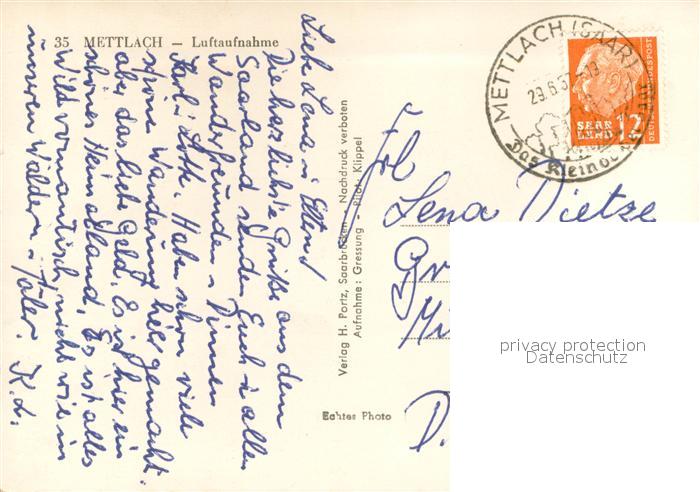 35 METTLACH — Luftaufnahme
Liebe Lena u. Eltern!
Die herzlichste Grüße aus dem
Saarland senden Euch u. allen
Wanderfreunden u. Innen
Karl u. Lotte. Haben schon viele
schöne Wanderung hier gemacht.
aber das liebe Geld. Es ist hier ein
schönes Heimatland. Es ist alles
Wild romantisch, nicht wie in
unseren Wäldern u. Täler. K. L.
Verlag H. Portz, Saarbrücken - Nachdruck verboten
Aufnahme: Gressung - Pilot: Klippel
Echtes Photo
METTLACH (SAAR)
29.6.57
Das Kleinod
SAAR
LAND 12
DEUTSCHE BUNDESPOST
Frl
Lena Dietze
Gr
Mi
D.
privacy protection
Datenschutz